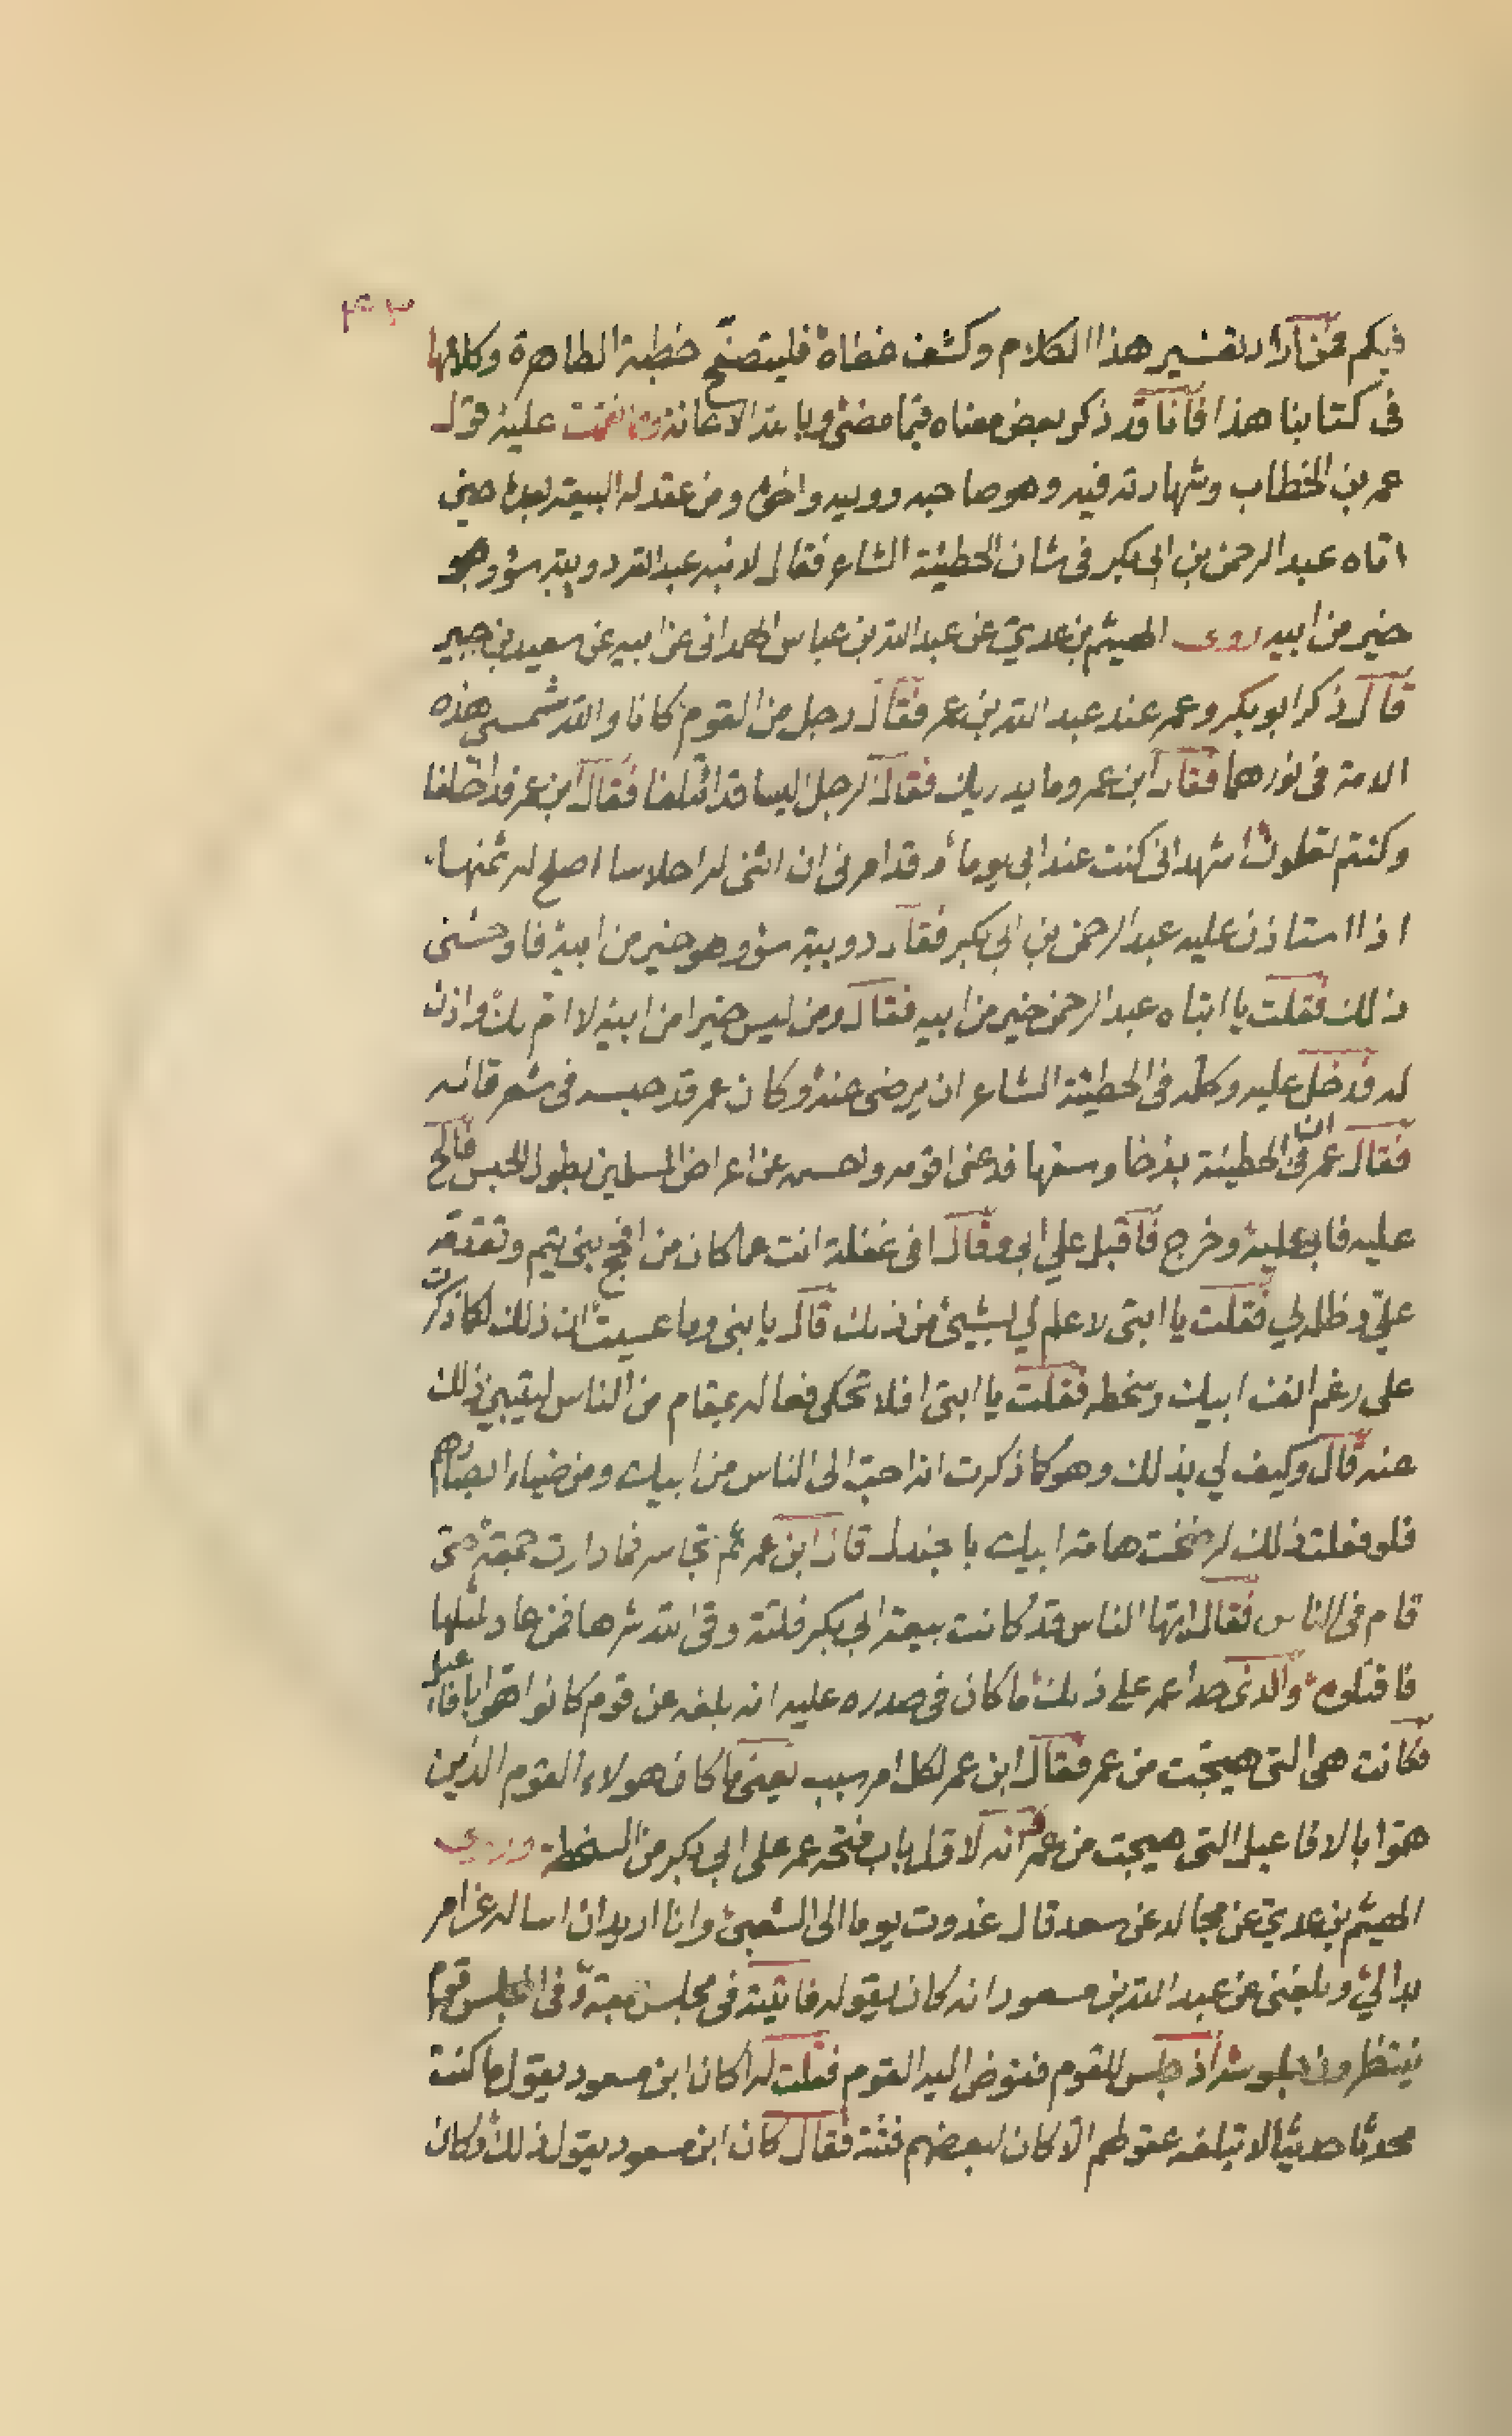 ٤٣
فيكم فمن أراد تفسير هذا الكلام وكشف غطاه فليتصفّح خطبة الطاهرة وكلامها
في كتابنا هذا فانا قد ذكر بعض معناه فيما مضى وبالله الاعانة ومما نقمت عليه قول
عمر بن الخطاب وشهادته فيه وهو صاحبه ووليه واخوه ومن عقد له البيعة بعده حين
اتاه عبد الرحمن بن ابي بكر في شان الحطيئة الشاعر فقال لابنه عبد الله دويبة سؤ وهو
خير من ابيه روى الهيثم بن عدي عن عبد الله بن عباس الهمداني عن ابيه عن سعيد بن جبير
قال ذكر ابو بكر وعمر عند عبد الله بن عمر فقال رجل من القوم كانا والله شمسي هذه
الامة في نورهما فقال ابن عمر وما يدريك فقال الرجل اليسا قد ائتلفا فقال ابن عمر قد اختلفا
وكنتم تعلمون اشهد اني كنت عند ابي يوما وقد امرني ان اثني له احلاسا اصلح له ثمنها
اذا استاذن عليه عبد الرحمن بن ابي بكر فقال دويبة سؤ وهو خير من ابيه فاوحشني
ذلك فقلت يا ابتاه عبد الرحمن خير من ابيه فقال ومن ليس خيرا من ابيه لا ام لك واذن
له فدخل عليه وكلمه في الحطيئة الشاعر ان يرضى عنه وكان عمر قد حبسه في شعر قاله
فقال عمر ان في الحطيئة بذخا وسفها فدعني اقومه واحسمه عن اعراض المسلمين بطول الحبس فالح
عليه فابى عليه وخرج فاقبل علي ابي وقال افي غفلة انت عما كان من احيمق بني تيم وتقدمه
علي وظلمه لي فقلت يا ابتي لا علم لي بشيئ من ذلك قال يا بني وما عسيت ان ذلك لكما ذكرت
على رغم انف ابيك وسخطه فقلت يا ابتي افلا تحكي فعاله بمقام من الناس ليتبين ذلك
عنه قال وكيف لي بذلك وهو كما ذكرت انه احب الى الناس من ابيك ومن ضياء ابصارهم
فلو فعلت ذلك لرضخت هامة ابيك با جندل قال ابن عمر ثم تجاسر فما دارت جمعة حتى
قام في الناس فقال ايها الناس قد كانت بيعة ابي بكر فلتة وقى الله شرها فمن عاد لمثلها
فاقتلوه والذي حدا عمر على ذلك ما كان في صدره عليه انه بلغه عن قوم كانوا هموا بافاعيل
فكانت هي التي هيجت من عمر فقال ابن عمر لكل امر سبب يعني ما كان هولاء القوم الذين
هموا بالافاعيل التي هيجت من عمر انه لاول باب فتحه عمر على ابي بكر من السخطة وروى
الهيثم بن عدي عن مجالد عن سعد قال غدوت يوما الى الشعبي وانا اريد ان اساله عن امر
بدا لي وبلغني عن عبد الله بن مسعود انه كان يقوله فاتيته في مجلس معه وفي المجلس قوم
ينتظرون جلوسه اذ جلس للقوم فنوض اليه القوم فقلت له اكان ابن مسعود يقول ما كنت
محدثا حديثا لا تبلغه عقولهم الا كان لبعضهم فتنة فقال كان ابن مسعود يقول ذلك وكان